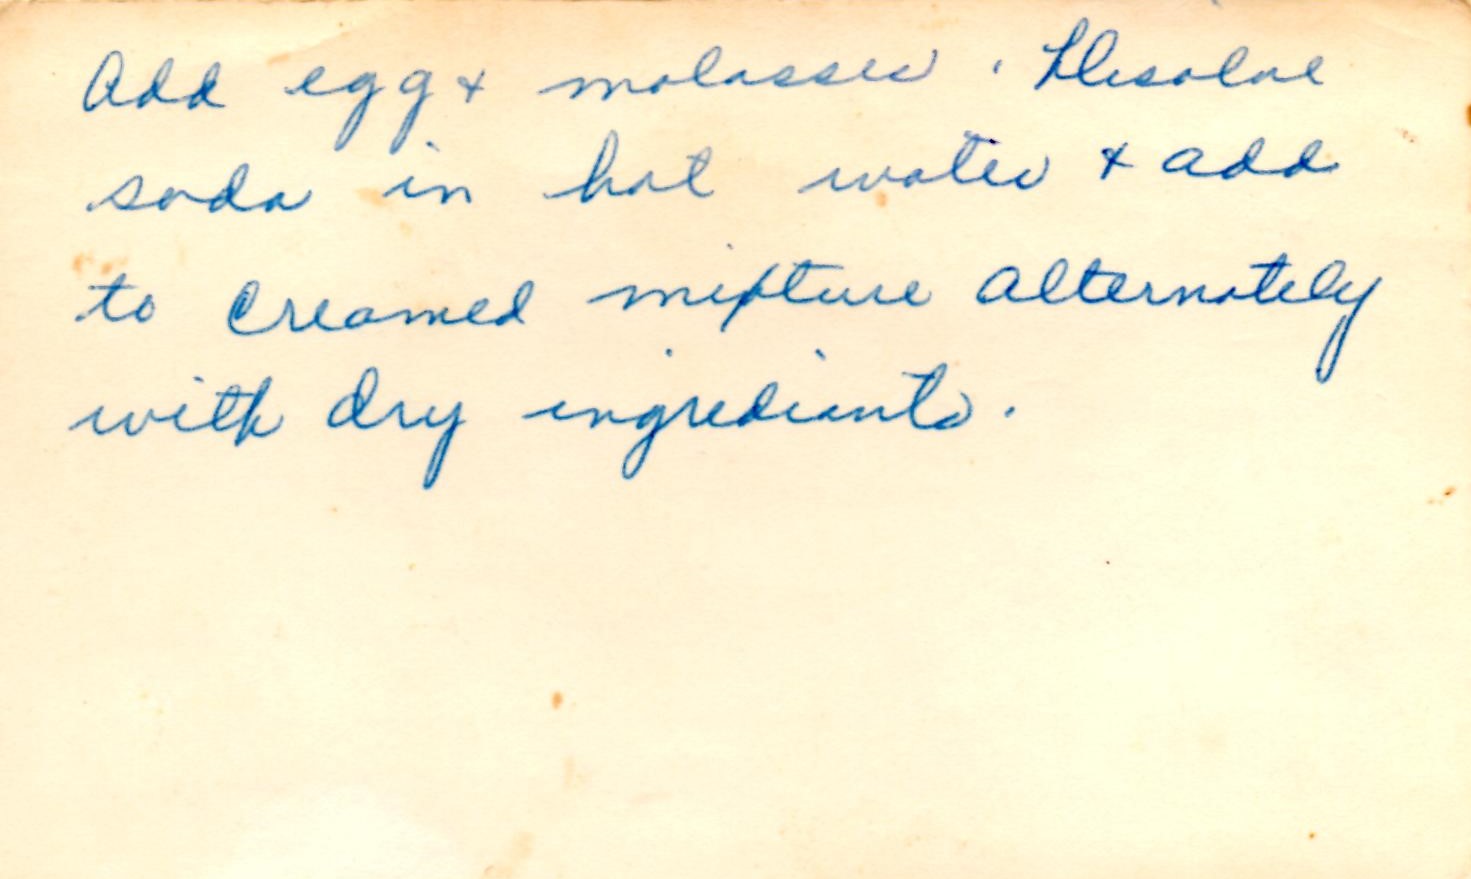 Add egg & molasses. Disolve
soda in hot water & add
to creamed mixture alternately
with dry ingrediants.